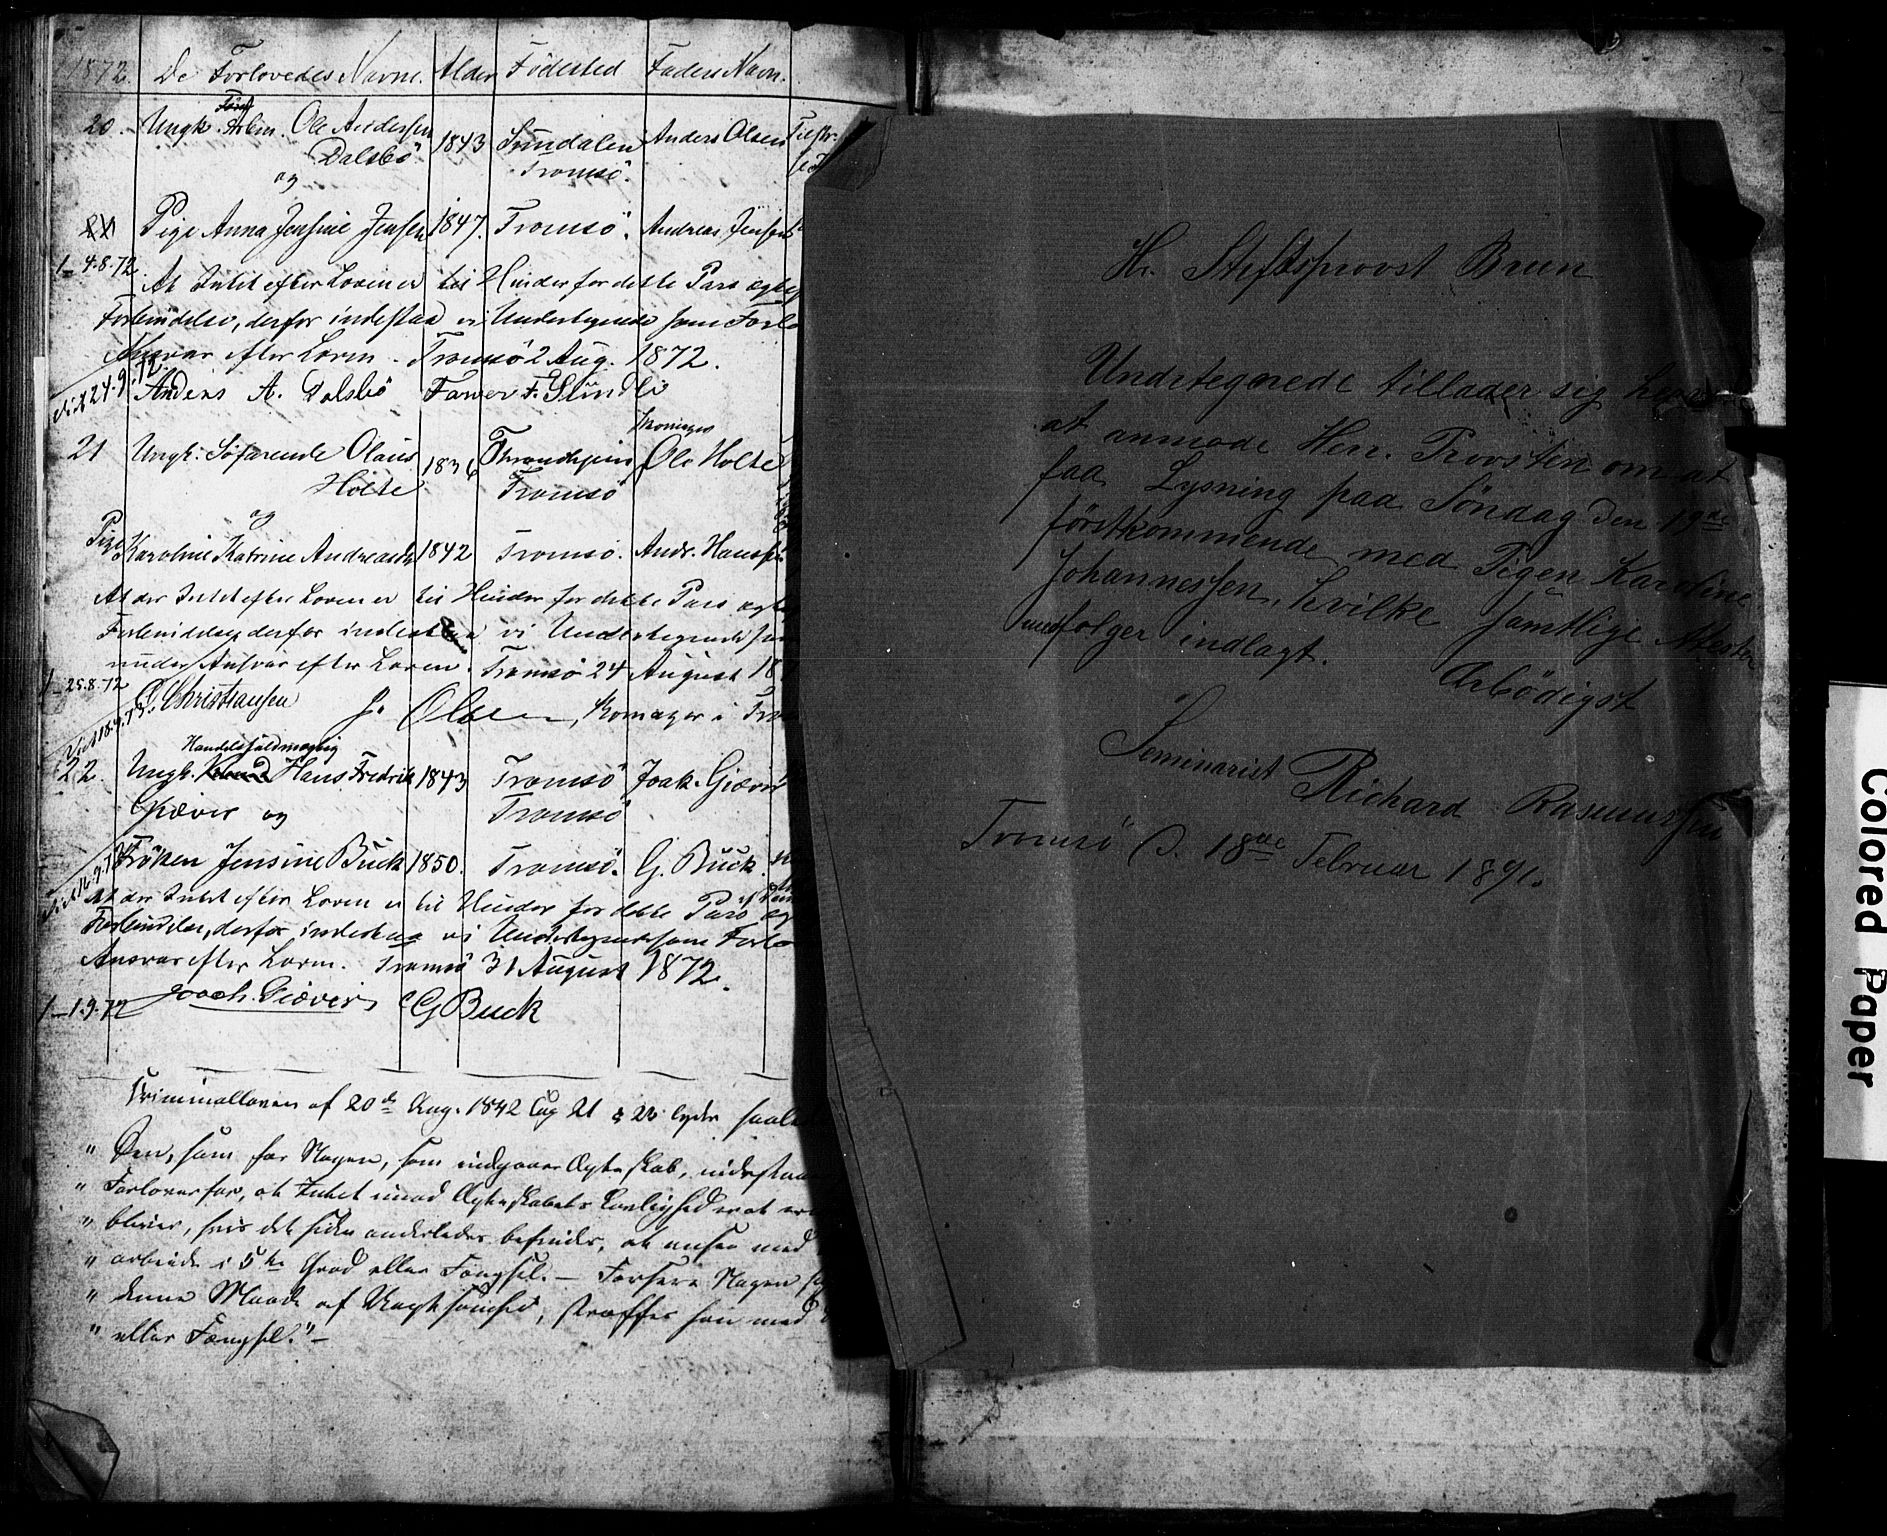 1872. De Forlovedes Navne. Alder Födested Faders Navn.
20. Ungk. Arbm. Ole Andersen 1843 Sundalen Anders Olsen
Dalsbö Tromsö.
og
Pige Anna Jensine Jensen 1847. Tromsö. Andreas Jensen
1 - 4.8.72. At Intet efter Loven er til Hinder for dette Pars
Forbindelse, derfor indestaa vi Undertegnede som
Ansvar efter Loven. Tromsö 2 Aug. 1872.
24.9.72. Anders A. Dalsbö
21 Ungk. Söfarende Olaus 1836 Throndhjem Ole Holte
Holte Tromsö
og
Pige Karoline Katrine 1842 Tromsö. Andr. Hansen
At der Intet efter Loven er til Hinder for dette Pars
Forbindelse derfor indestaa vi Undertegnede
under Ansvar efter Loven. Tromsö 24 August
1 - 25.8.72 Christiansen J. Olsen, Komager i
Handelsfuldmægtig
22. Ungk. Hans Fredrik 1843 Tromsö Joak. Giæver
Giæver og Tromsö
Fröken Jensine Buck 1850. Tromsö. G. Buck.
At der Intet efter Loven er til Hinder for dette Pars
Forbindelse, derfor indestaa vi Undertegnede som
Ansvar efter Loven. Tromsö 31 August 1872.
1 - 1.9.72 Joach. Giæver G Buck
Criminalloven af 20de Aug. 1842 Cap 21 § 22 lyder
" Den, som for Nogen, som indgaaer Ægteskab, indestaaer
" Forlover for, at Intet imod Ægteskabets Lovlighed er at
" bliver, hvis det siden anderledes befindes, at ansee med
" arbeide i 5te Grad eller Fængsel. — Forseer Nogen
" denne Maade af Uagtsomhed, straffes han med
" eller Fængsel." —
Hr. Stiftsprovst Brun
Undertegnede tillader sig
at anmode Herr. Provsten om at
faa Lysning paa Söndag den 19de
förstkommende med Pigen Karoline
Johannessen, hvilke samtlige Attester
medfölger indlagt.
Ærbödigst
Seminarist
Richard Rasmussen
Tromsö d. 18de Februar 1891.
Colored Paper